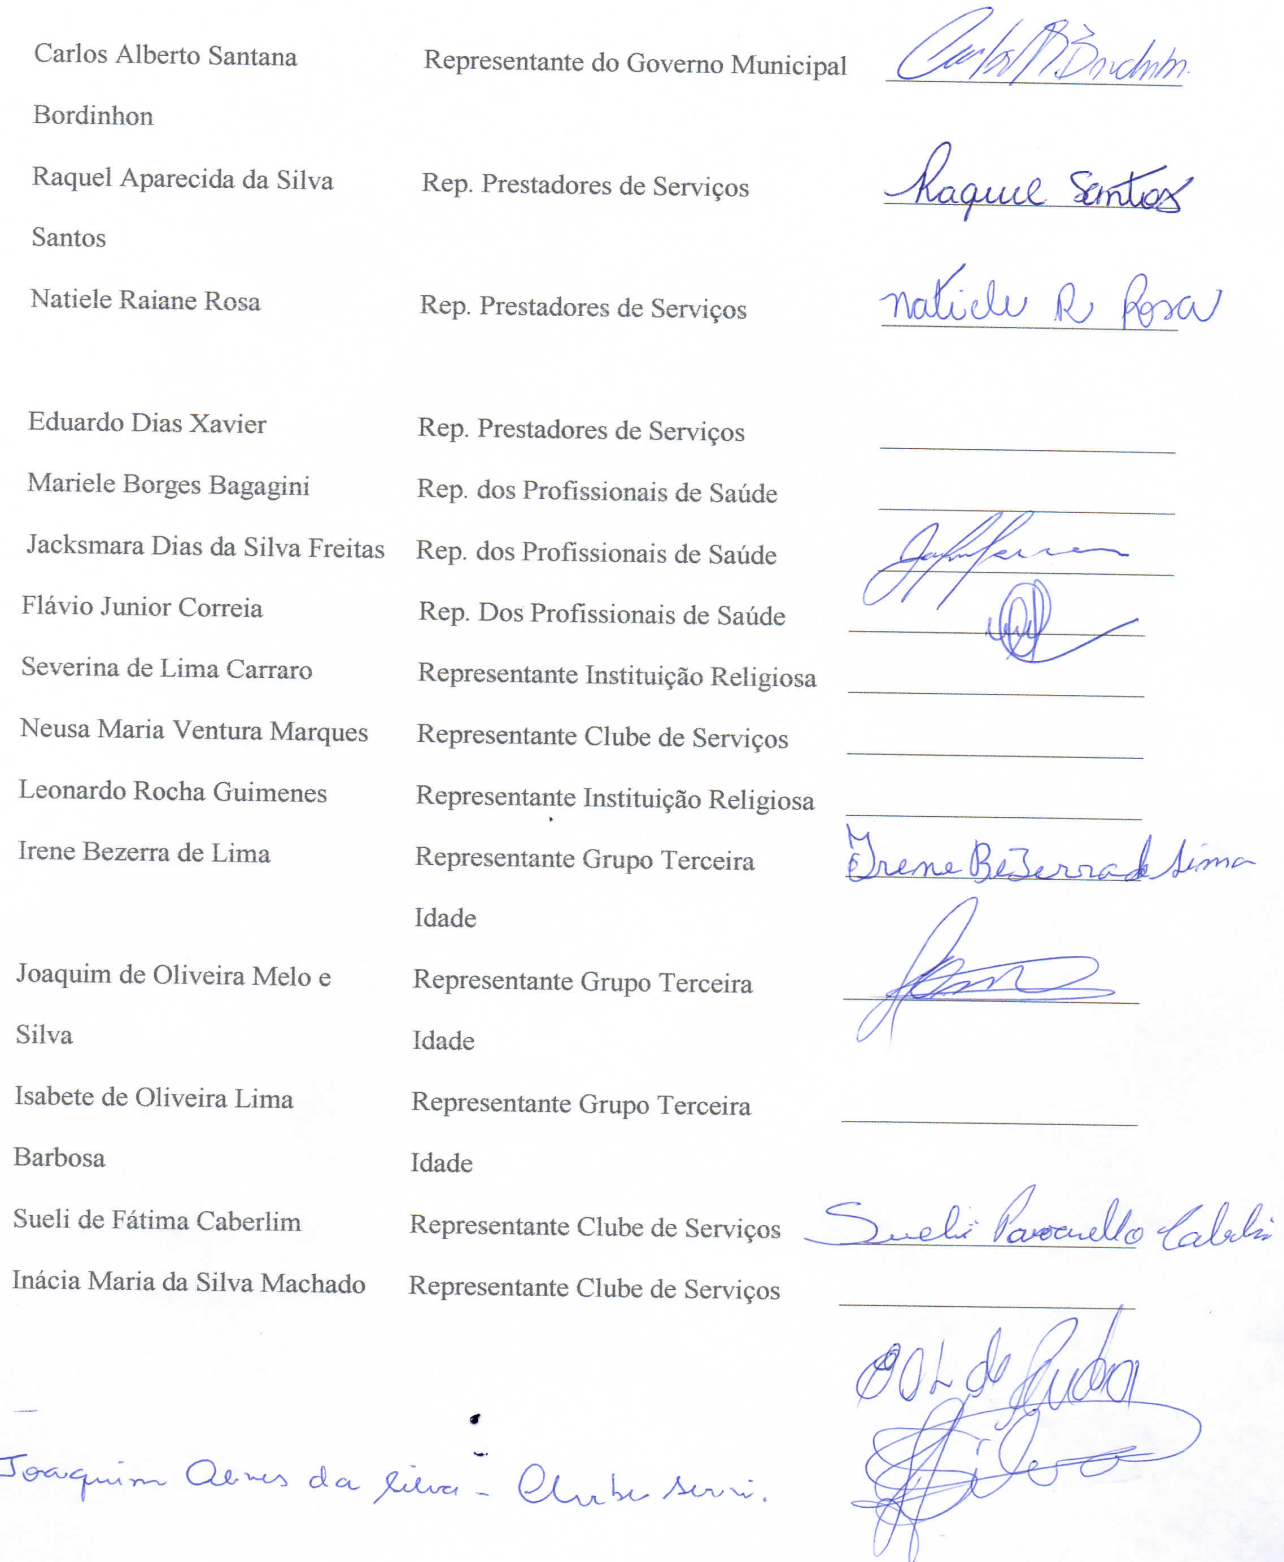 Carlos Alberto Santana Representante do Governo Municipal
Bordinhon
Raquel Aparecida da Silva Rep. Prestadores de Serviços Raquel Santos
Santos
Natiele Raiane Rosa Rep. Prestadores de Serviços Natiele R Rosa
Eduardo Dias Xavier Rep. Prestadores de Serviços
Mariele Borges Bagagini Rep. dos Profissionais de Saúde
Jacksmara Dias da Silva Freitas Rep. dos Profissionais de Saúde
Flávio Junior Correia Rep. Dos Profissionais de Saúde
Severina de Lima Carraro Representante Instituição Religiosa
Neusa Maria Ventura Marques Representante Clube de Serviços
Leonardo Rocha Guimenes Representante Instituição Religiosa
Irene Bezerra de Lima Representante Grupo Terceira Irene Bezerra de Lima
Idade
Joaquim de Oliveira Melo e Representante Grupo Terceira
Silva Idade
Isabete de Oliveira Lima Representante Grupo Terceira
Barbosa Idade
Sueli de Fátima Caberlim Representante Clube de Serviços Sueli
Inácia Maria da Silva Machado Representante Clube de Serviços
Joaquim Alves da Silva - Clube Servi.